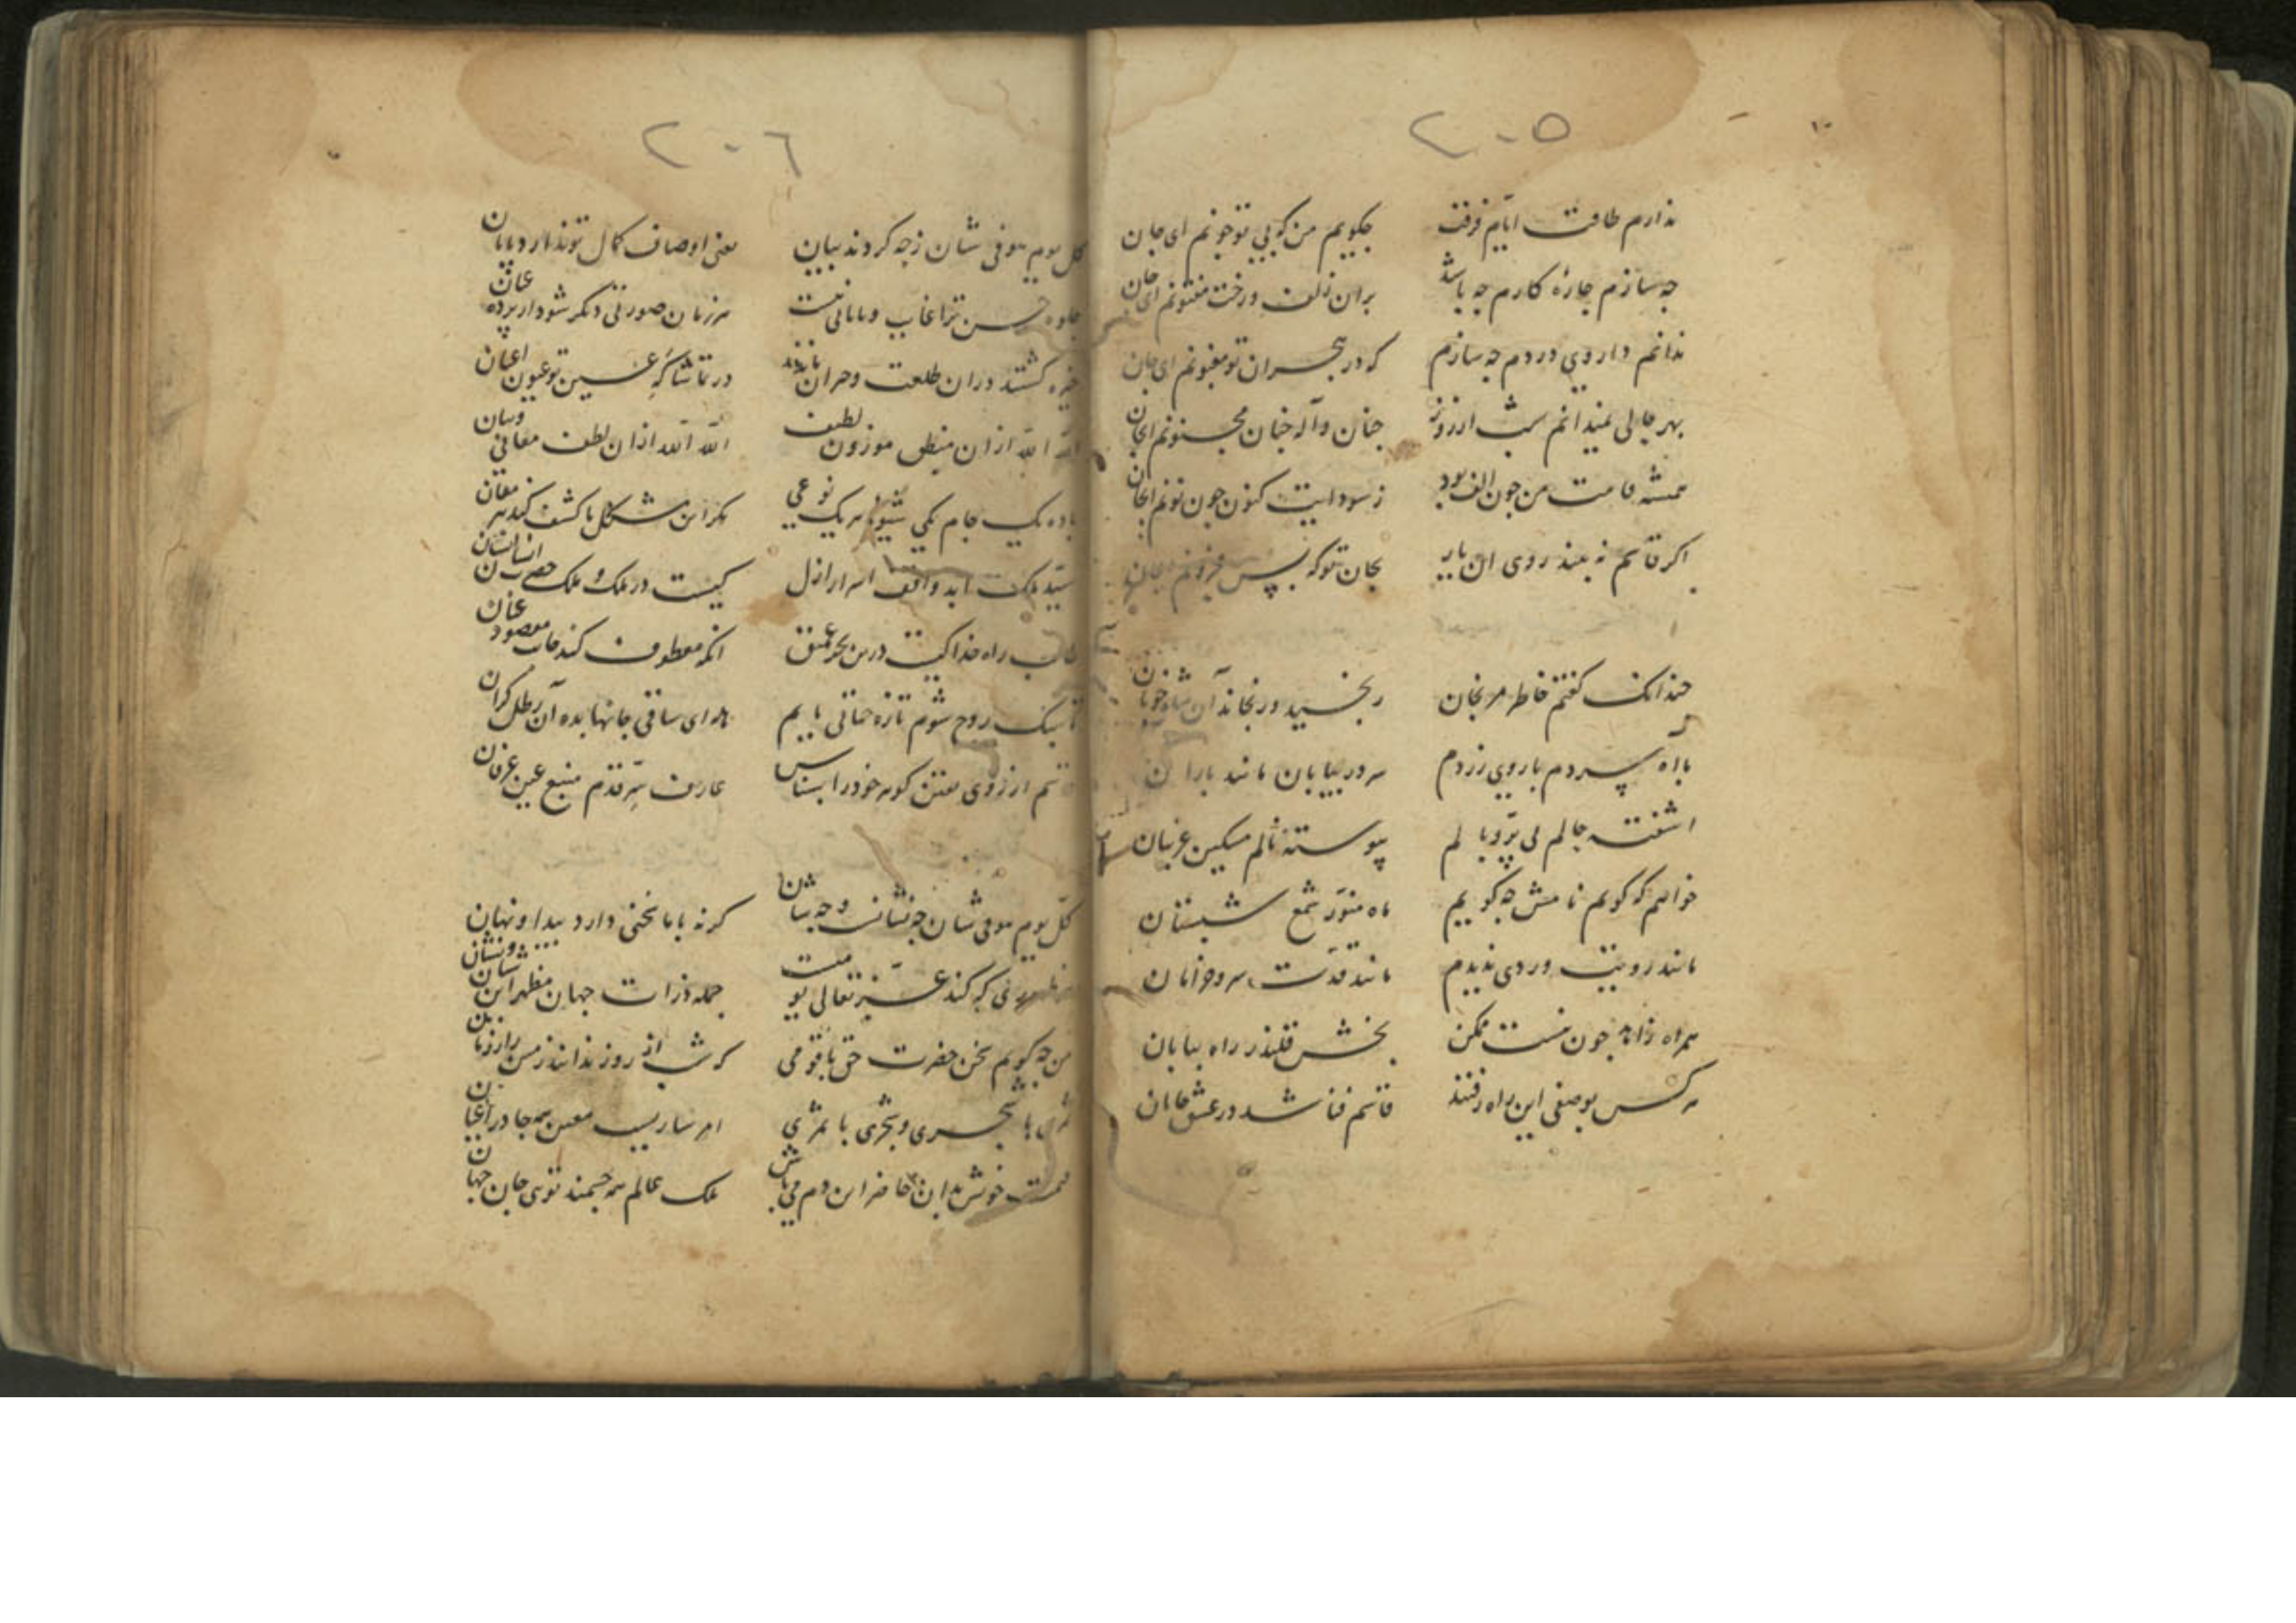 ٢٠٥
ندارم طاقت ایام فرقت جکویم من که بی تو جونم ای جان
جه سازم جارۀ کارم جه باشد بران زلف ورخت مفتونم ای جان
ندانم داروی دردم جه سازم که در هجران تو مغبونم ای جان
بهر حالی نمیدانم شب از روز جنان واله جنان مجنونم ایجان
همیشه قامت من جون الف بود ز سودایت کنون جون نونم ایجان
اکر قاسم نه بیند روی ان یار بجان تو که بس محزونم ایجان
جندانک کفتم خاطر مرنجان رنجید ورنجاند آن شاه خوبان
با آه سردم با روی زردم سر در بیابان مانند باران
اشفته حالم بی پر و بالم پیوسته نالم مسکین غریبان
خواهم که کویم نامش جه کویم ماه منور شمع شبستان
مانند رویت وردی ندیدم مانند قدت سرو خرامان
همراه زاهد جون نیست ممکن بخش قلندر راه بیابان
هر کس بوصفی این راه رفتند قاسم فنا شد در عشق جانان
٢٠٦
کل یوم هو فی شان زجه کردند بیان یعنی اوصاف کمال تو ندارد پایان
جلوه حسن ترا غایت وپایانی نیست هر زمان صورتی دیکر شود از پرده عیان
خیره کشتند دران طلعت وحیران ماندند در تماشاکه حسن تو عیون اعیان
الله الله ازان منطق موزون لطیف الله الله ازان لطف معانی وبیان
باده یک جام یکی شیوه هر یک نوعی مکر این مشکل ما کشف کند پیر مغان
سید ملک ابد واقف اسرار ازل کیست در ملک و ملک حضرت انسان
طالب راه خدا کیست درین بحر عمیق انکه معطوف کند جانب مقصود عنان
تا سبک روح شوم تازه حیاتی یابیم ای ساقی جانها بده آن رطل کران
قاسم از روی یقین کوهر خود را بشناس عارف سر قدم منبع عین عرفان
کل یوم هو فی شان جه نشانست وجه شان کرنه با ما سخنی دارد پیدا ونهان
جمله ذرات جهان مظهر این شان ونشان
من جه کویم سخن حضرت حق با قومی که شب از روز ندانند زمین را ز زمان
شجری وشجری با ثمری امر ساریست معین همه جا در اعیان
خوش بدان حاضر این دم می باش ملک عالم همه جسمند تویی جان جهان